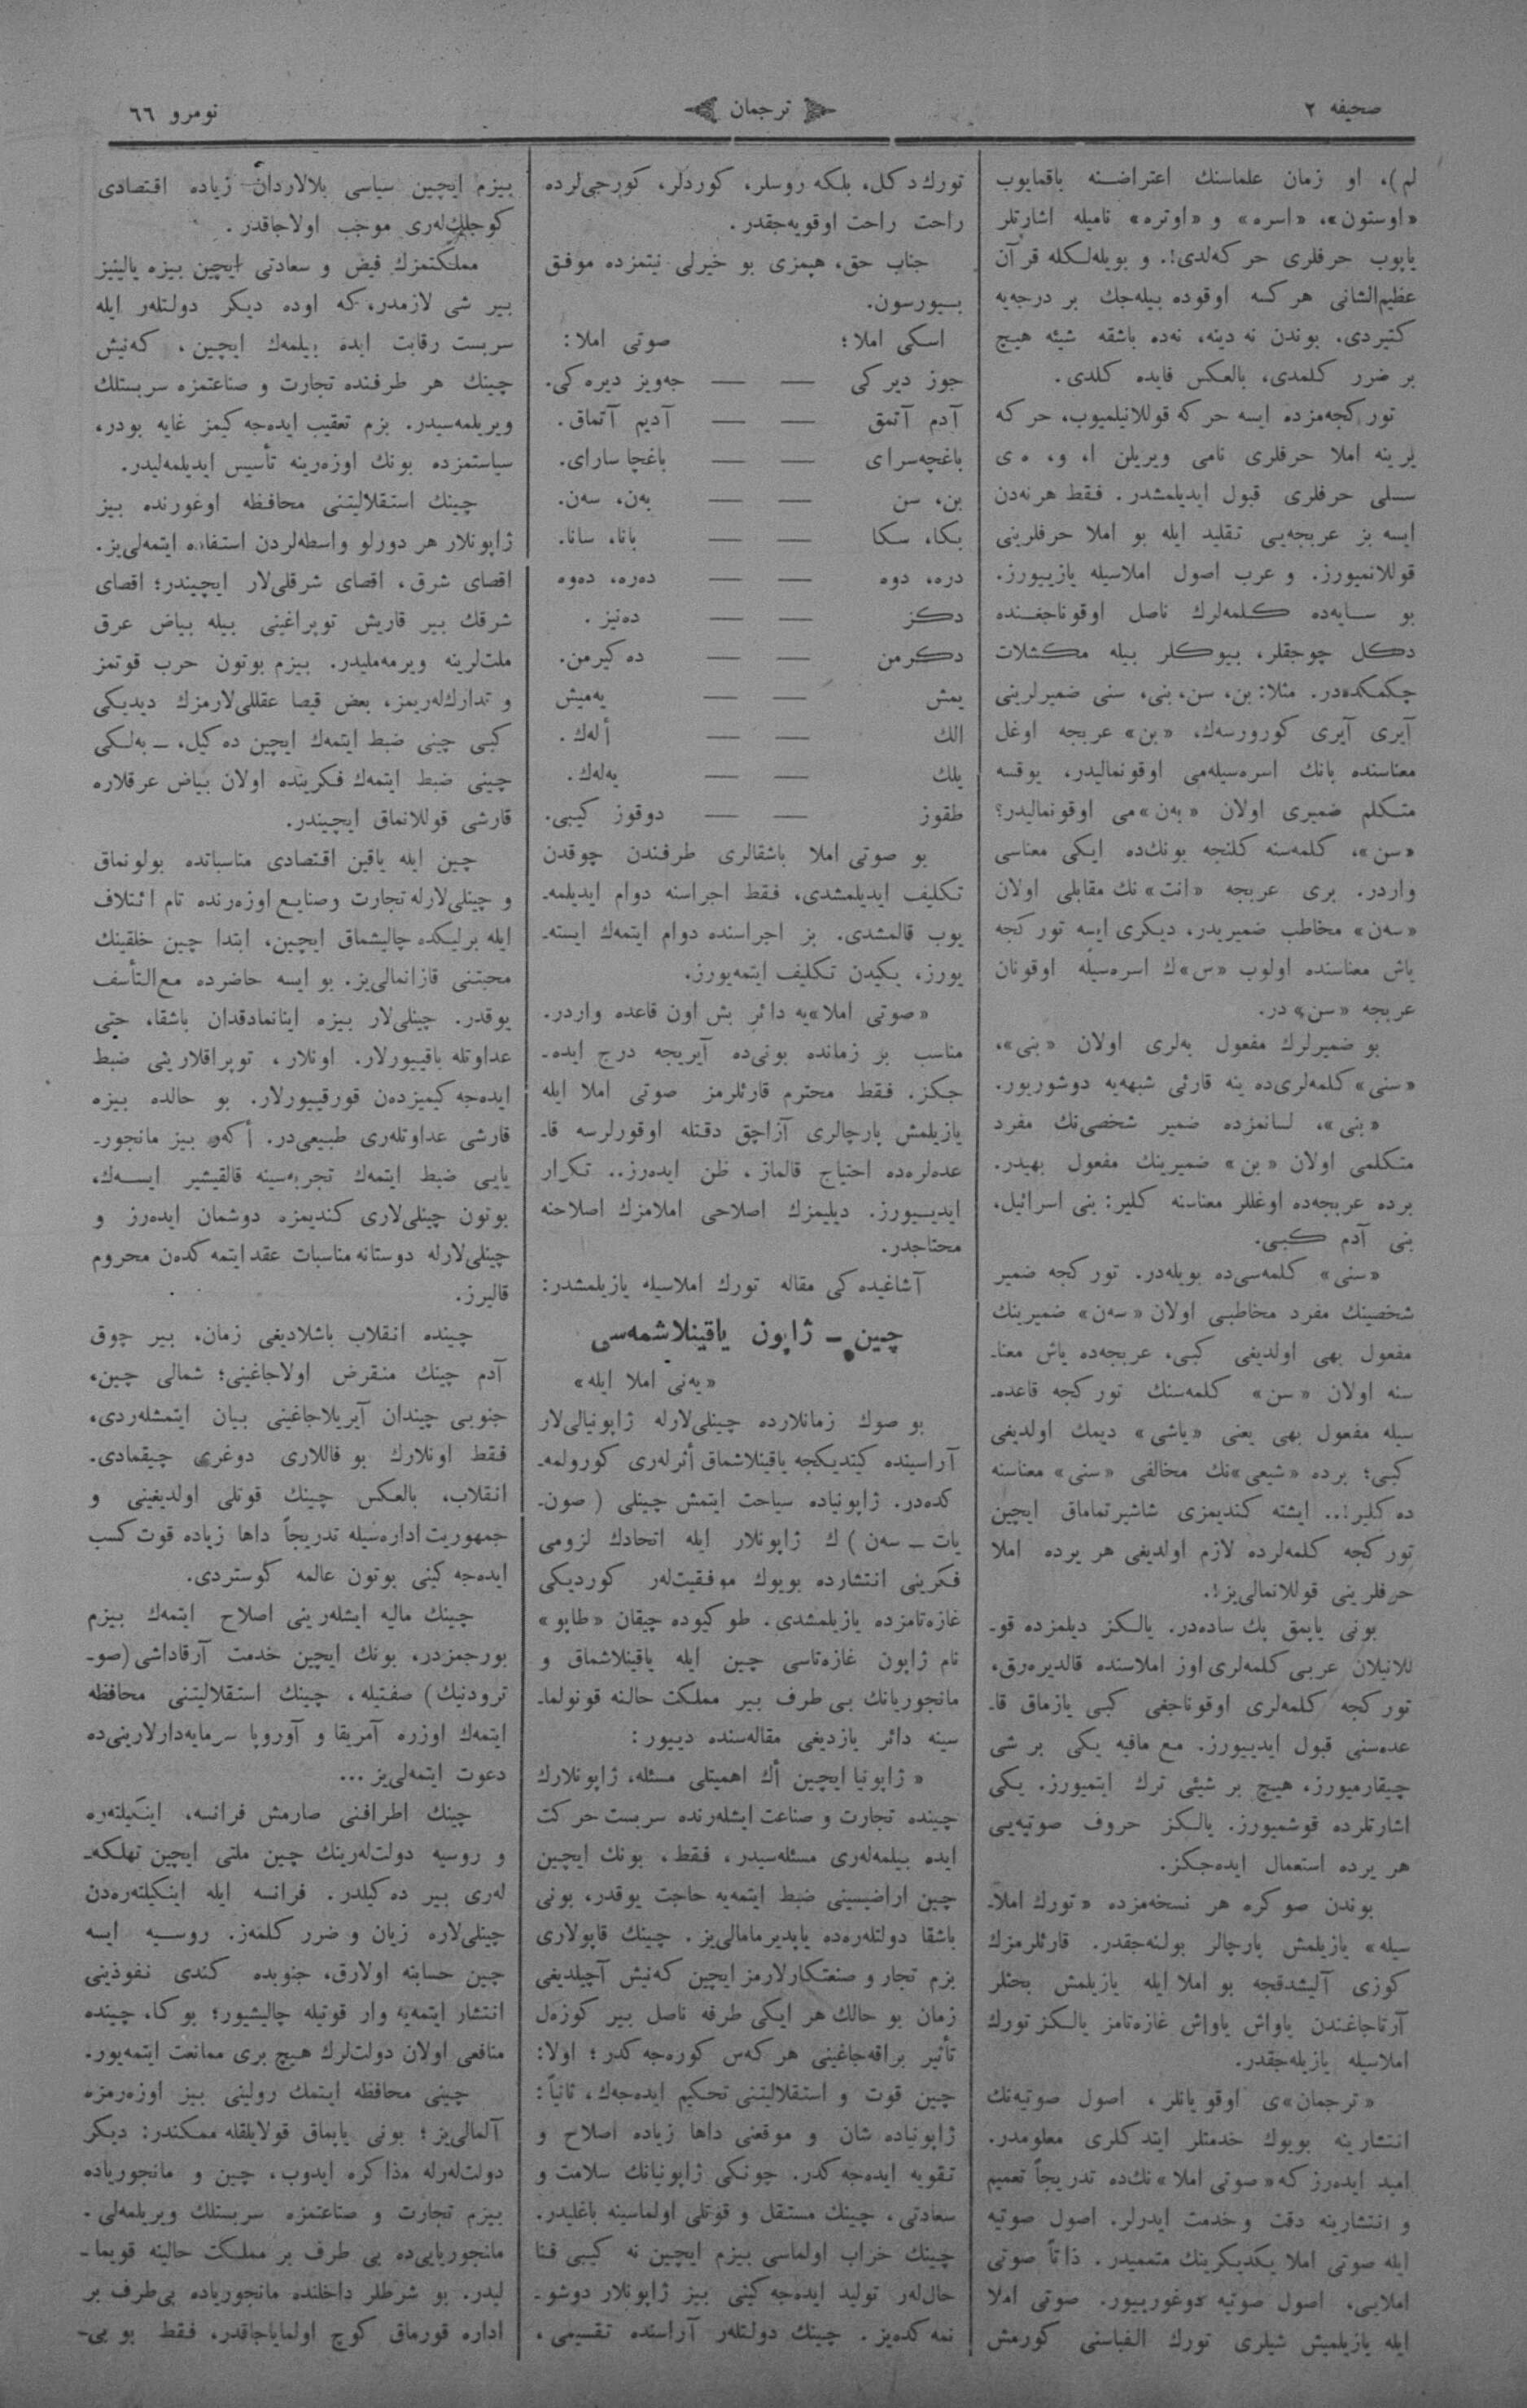 صحیفه ٢
ترجمان
نومرو ٦٦
لم)، او زمان علماسنك اعتراضنه باقمایوب
«اوستون»، «اسره» و «اوتره» نامیله اشارتلر
یاپوب حرفلری حرکه‌لدی!. و بویله‌لكله قرآن
عظیم‌الشانی هر کسه اوقوده بیله‌جك بر درجه‌یه
کتیردی. بوندن نه دینه، نه‌ده باشقه شیئه هیچ
بر ضرر کلمدی، بالعکس فایده کلدی.
تورکجه‌مزده ایسه حرکه قوللانیلمیوب، حرکه
یرینه املا حرفلری نامی ویریلن ا، و، ه ی
سسلی حرفلری قبول ایدیلمشدر. فقط هر نه‌دن
ایسه بز عربجه‌یی تقلید ایله بو املا حرفلرینی
قوللانمیورز. و عرب اصول املاسیله یازییورز.
بو سایه‌ده کلمه‌لرك ناصل اوقوناجغنده
دکل چوجقلر، بیوکلر بیله مشکلات
چکمکده‌در. مثلا: بن، سن، بنی، سنی ضمیرلرینی
آیری آیری کورورسه‌ك، «بن» عربجه اوغل
معناسنده بانك اسره‌سیله‌می اوقونمالیدر، یوقسه
متکلم ضمیری اولان «به‌ن»می اوقونمالیدر؟
«سن»، کلمه‌سنه کلنجه بونك‌ده ایکی معناسی
واردر. بری عربجه «انت»نك مقابلی اولان
«سه‌ن» مخاطب ضمیریدر، دیکری ایسه تورکجه
یاش معناسنده اولوب «س»ك اسره‌سیله اوقونان
عربجه «سن» در.
بو ضمیرلرك مفعول به‌لری اولان «بنی»،
«سنی» کلمه‌لری‌ده ینه قارئی شبهه‌یه دوشوریور.
«بنی»، لسانمزده ضمیر شخصی‌نك مفرد
متکلمی اولان «بن» ضمیرینك مفعول بهیدر.
برده عربجه‌ده اوغللر معناسنه کلیر: بنی اسرائیل،
بنی آدم کبی.
«سنی» کلمه‌سی‌ده بویله‌در. تورکجه ضمیر
شخصینك مفرد مخاطبی اولان «سه‌ن» ضمیرینك
مفعول بهی اولدیغی کبی، عربجه‌ده یاش معنا-
سنه اولان «سن» کلمه‌سنك تورکجه قاعده-
سیله مفعول بهی یعنی «یاشی» دیمك اولدیغی
کبی؛ برده «شیعی»نك مخالفی «سنی» معناسنه
ده کلیر!.. ایشته کندیمزی شاشیرتماماق ایچین
تورکجه کلمه‌لرده لازم اولدیغی هر یرده املا
حرفلرینی قوللانمالی‌یز!.
بونی یاپمق پك ساده‌در. یالکز دیلمزده قو-
للانیلان عربی کلمه‌لری اوز املاسنده قالدیره‌رق،
تورکجه کلمه‌لری اوقوناجغی کبی یازماق قا-
عده‌سنی قبول ایدییورز. مع مافیه یکی بر شی
چیقارمیورز، هیچ بر شیئی ترك ایتمیورز. یکی
اشارتلرده قوشمیورز. یالکز حروف صوتیه‌یی
هر یرده استعمال ایده‌جکز.
بوندن صوکره هر نسخه‌مزده «تورك املا-
سیله» یازیلمش پارچالر بولنه‌جقدر. قارئلرمزك
کوزی آلیشدقجه بو املا ایله یازیلمش بحثلر
آرتاجاغندن یاواش یاواش غازه‌تامز یالکز تورك
املاسیله یازیله‌جقدر.
«ترجمان»ی اوقویانلر، اصول صوتیه‌نك
انتشارینه بویوك خدمتلر ایتدکلری معلومدر.
امید ایده‌رز که «صوتی املا»نك‌ده تدریجاً تعمیم
و انتشارینه دقت و خدمت ایدرلر. اصول صوتیه
ایله صوتی املا یکدیکرینك متممیدر. ذاتاً صوتی
املایی، اصول صوتیه دوغورییور. صوتی املا
ایله یازیلمیش شیلری تورك الفباسنی کورمش
تورك دکل، بلکه روسلر، کوردلر، کورجی‌لرده
راحت راحت اوقویه‌جقدر.
جناب حق، هپمزی بو خیرلی نیتمزده موفق
بیورسون.
اسکی املا؛ صوتی املا:
جوز دیرکی — — جه‌ویز دیره‌کی.
آدم آتمق — — آدیم آتماق.
باغچه‌سرای — — باغچا سارای.
بن، سن — — به‌ن، سه‌ن.
بکا، سکا — — بانا، سانا.
دره، دوه — — ده‌ره، ده‌وه
دکز — — ده‌نیز.
دکرمن — — ده‌کیرمن.
یمش — — یه‌میش
الك — — أله‌ك.
یلك — — یه‌له‌ك.
طقوز — — دوقوز کیبی.
بو صوتی املا باشقالری طرفندن چوقدن
تکلیف ایدیلمشدی، فقط اجراسنه دوام ایدیلمه-
یوب قالمشدی. بز اجراسنده دوام ایتمه‌ك ایسته-
یورز، یکیدن تکلیف ایتمه‌یورز.
«صوتی املا»یه دائر بش اون قاعده واردر.
مناسب بر زمانده بونی‌ده آیریجه درج ایده-
جکز. فقط محترم قارئلرمز صوتی املا ایله
یازیلمش پارچالری آزاچق دقتله اوقورلرسه قا-
عده‌لره‌ده احتیاج قالماز، ظن ایده‌رز.. تکرار
ایدییورز. دیلیمزك اصلاحی املامزك اصلاحنه
محتاجدر.
آشاغیده‌کی مقاله تورك املاسیله یازیلمشدر:
چین - ژاپون یاقینلاشمه‌سی
«یه‌نی املا ایله»
بو صوك زمانلارده چینلی‌لارله ژاپونیالی‌لار
آراسینده کیتدیکجه یاقینلاشماق أثرله‌ری کورولمه-
کده‌در. ژاپونیاده سیاحت ایتمش چینلی (صون-
یات – سه‌ن)ك ژاپونلار ایله اتحادك لزومی
فکرینی انتشارده بویوك موفقیت‌له‌ر کوردیکی
غازه‌تامزده یازیلمشدی. طوکیوده چیقان «طایو»
نام ژاپون غازه‌تاسی چین ایله یاقینلاشماق و
مانجوریانك بی طرف بیر مملکت حالنه قونولما-
سینه دائر یازدیغی مقاله‌سنده دییور:
«ژاپونیا ایچین أك اهمیتلی مسئله، ژاپونلارك
چینده تجارت و صناعت ایشله‌رنده سربست حرکت
ایده بیلمه‌له‌ری مسئله‌سیدر، فقط، بونك ایچین
چین اراضیسینی ضبط ایتمه‌یه حاجت یوقدر، بونی
باشقا دولتله‌ره‌ده یاپدیرمامالی‌یز. چینك قاپولاری
بزم تجار و صنعتکارلارمز ایچین که‌نیش آچیلدیغی
زمان بو حالك هر ایکی طرفه ناصل بیر کوزه‌ل
تأثیر براقه‌جاغینی هر که‌س کوره‌جه‌کدر؛ اولا:
چین قوت و استقلالیتنی تحکیم ایده‌جه‌ك، ثانیاً:
ژاپونیاده شان و موقعنی داها زیاده اصلاح و
تقویه ایده‌جه‌کدر. چونکی ژاپونیانك سلامت و
سعادتی، چینك مستقل و قوتلی اولماسینه باغلیدر.
چینك خراب اولماسی بیزم ایچین نه کیبی فنا
حال‌له‌ر تولید ایده‌جه‌کنی بیز ژاپونلار دوشو-
نمه‌کده‌یز. چینك دولتله‌ر آراسنده تقسیمی،
بیزم ایچین سیاسی بلالاردان زیاده اقتصادی
کوجلك‌له‌ری موجب اولاجاقدر.
مملکتمزك فیض و سعادتی ایچین بیزه یالینیز
بیر شی لازمدر، که اوده دیکر دولتله‌ر ایله
سربست رقابت ایده بیلمه‌ك ایچین، که‌نیش
چینك هر طرفنده تجارت و صناعتمزه سربستلك
ویریلمه‌سیدر. بزم تعقیب ایده‌جه‌کیمز غایه بودر،
سیاستمزده بونك اوزه‌رینه تأسیس ایدیلمه‌لیدر.
چینك استقلالیتنی محافظه اوغورنده بیز
ژاپونلار هر دورلو واسطه‌لردن استفاده ایتمه‌لی‌یز.
اقصای شرق، اقصای شرقلی‌لار ایچیندر؛ اقصای
شرقك بیر قاریش توپراغینی بیله بیاض عرق
ملت‌لرینه ویرمه‌ملیدر. بیزم بوتون حرب قوتمز
و تدارك‌له‌ریمز، بعض قیصا عقللی‌لارمزك دیدیکی
کبی چینی ضبط ایتمه‌ك ایچین ده‌کیل، – به‌لکی
چینی ضبط ایتمه‌ك فکرینده اولان بیاض عرقلاره
قارشی قوللانماق ایچیندر.
چین ایله یاقین اقتصادی مناسباتده بولونماق
و چینلی‌لارله تجارت و صنایع اوزه‌رنده تام ائتلاف
ایله برلیکده چالیشماق ایچین، ابتدا چین خلقینك
محبتنی قازانمالی‌یز. بو ایسه حاضرده مع‌التأسف
یوقدر. چینلی‌لار بیزه اینانمادقدان باشقا، حتی
عداوتله باقییورلار. اونلار، توپراقلارینی ضبط
ایده‌جه‌کیمیزده‌ن قورقییورلار. بو حالده بیزه
قارشی عداوتله‌ری طبیعی‌در. أکه‌ر بیز مانجور-
یایی ضبط ایتمه‌ك تجربه‌سینه قالقیشیر ایسه‌ك،
بوتون چینلی‌لاری کندیمزه دوشمان ایده‌رز و
چینلی‌لارله دوستانه مناسبات عقد ایتمه‌کده‌ن محروم
قالیرز.
چینده انقلاب باشلادیغی زمان، بیر چوق
آدم چینك منقرض اولاجاغینی؛ شمالی چین،
جنوبی چیندان آیریلاجاغینی بیان ایتمشله‌ردی،
فقط اونلارك بو فاللاری دوغری چیقمادی.
انقلاب، بالعکس چینك قوتلی اولدیغینی و
جمهوریت اداره‌سیله تدریجاً داها زیاده قوت کسب
ایده‌جه‌کینی بوتون عالمه کوستردی.
چینك مالیه ایشله‌رینی اصلاح ایتمه‌ك بیزم
بورجمزدر، بونك ایچین خدمت آرقاداشی (صو-
ترودنیك) صفتیله، چینك استقلالیتنی محافظه
ایتمه‌ك اوزره آمریقا و آوروپا سرمایه‌دارلارینی‌ده
دعوت ایتمه‌لی‌یز...
چینك اطرافنی صارمش فرانسه، اینکیلته‌ره
و روسیه دولت‌له‌رینك چین ملتی ایچین تهلکه-
له‌ری بیر ده‌کیلدر. فرانسه ایله اینکیلته‌ره‌دن
چینلی‌لاره زیان و ضرر کلمه‌ز. روسیه ایسه
چین حسابنه اولارق، جنوبده کندی نفوذینی
انتشار ایتمه‌یه وار قوتیله چالیشیور؛ بوکا، چینده
منافعی اولان دولت‌لرك هیچ بری ممانعت ایتمه‌یور.
چینی محافظه ایتمك رولینی بیز اوزه‌رمزه
آلمالی‌یز؛ بونی یاپماق قولایلقله ممکندر: دیکر
دولت‌له‌رله مذاکره ایدوب، چین و مانجوریاده
بیزم تجارت و صناعتمزه سربستلك ویریلمه‌لی.
مانجوریایی‌ده بی طرف بر مملکت حالینه قویما-
لیدر. بو شرطلر داخلنده مانجوریاده بی‌طرف بر
اداره قورماق کوچ اولمایاجاقدر، فقط بو بی-